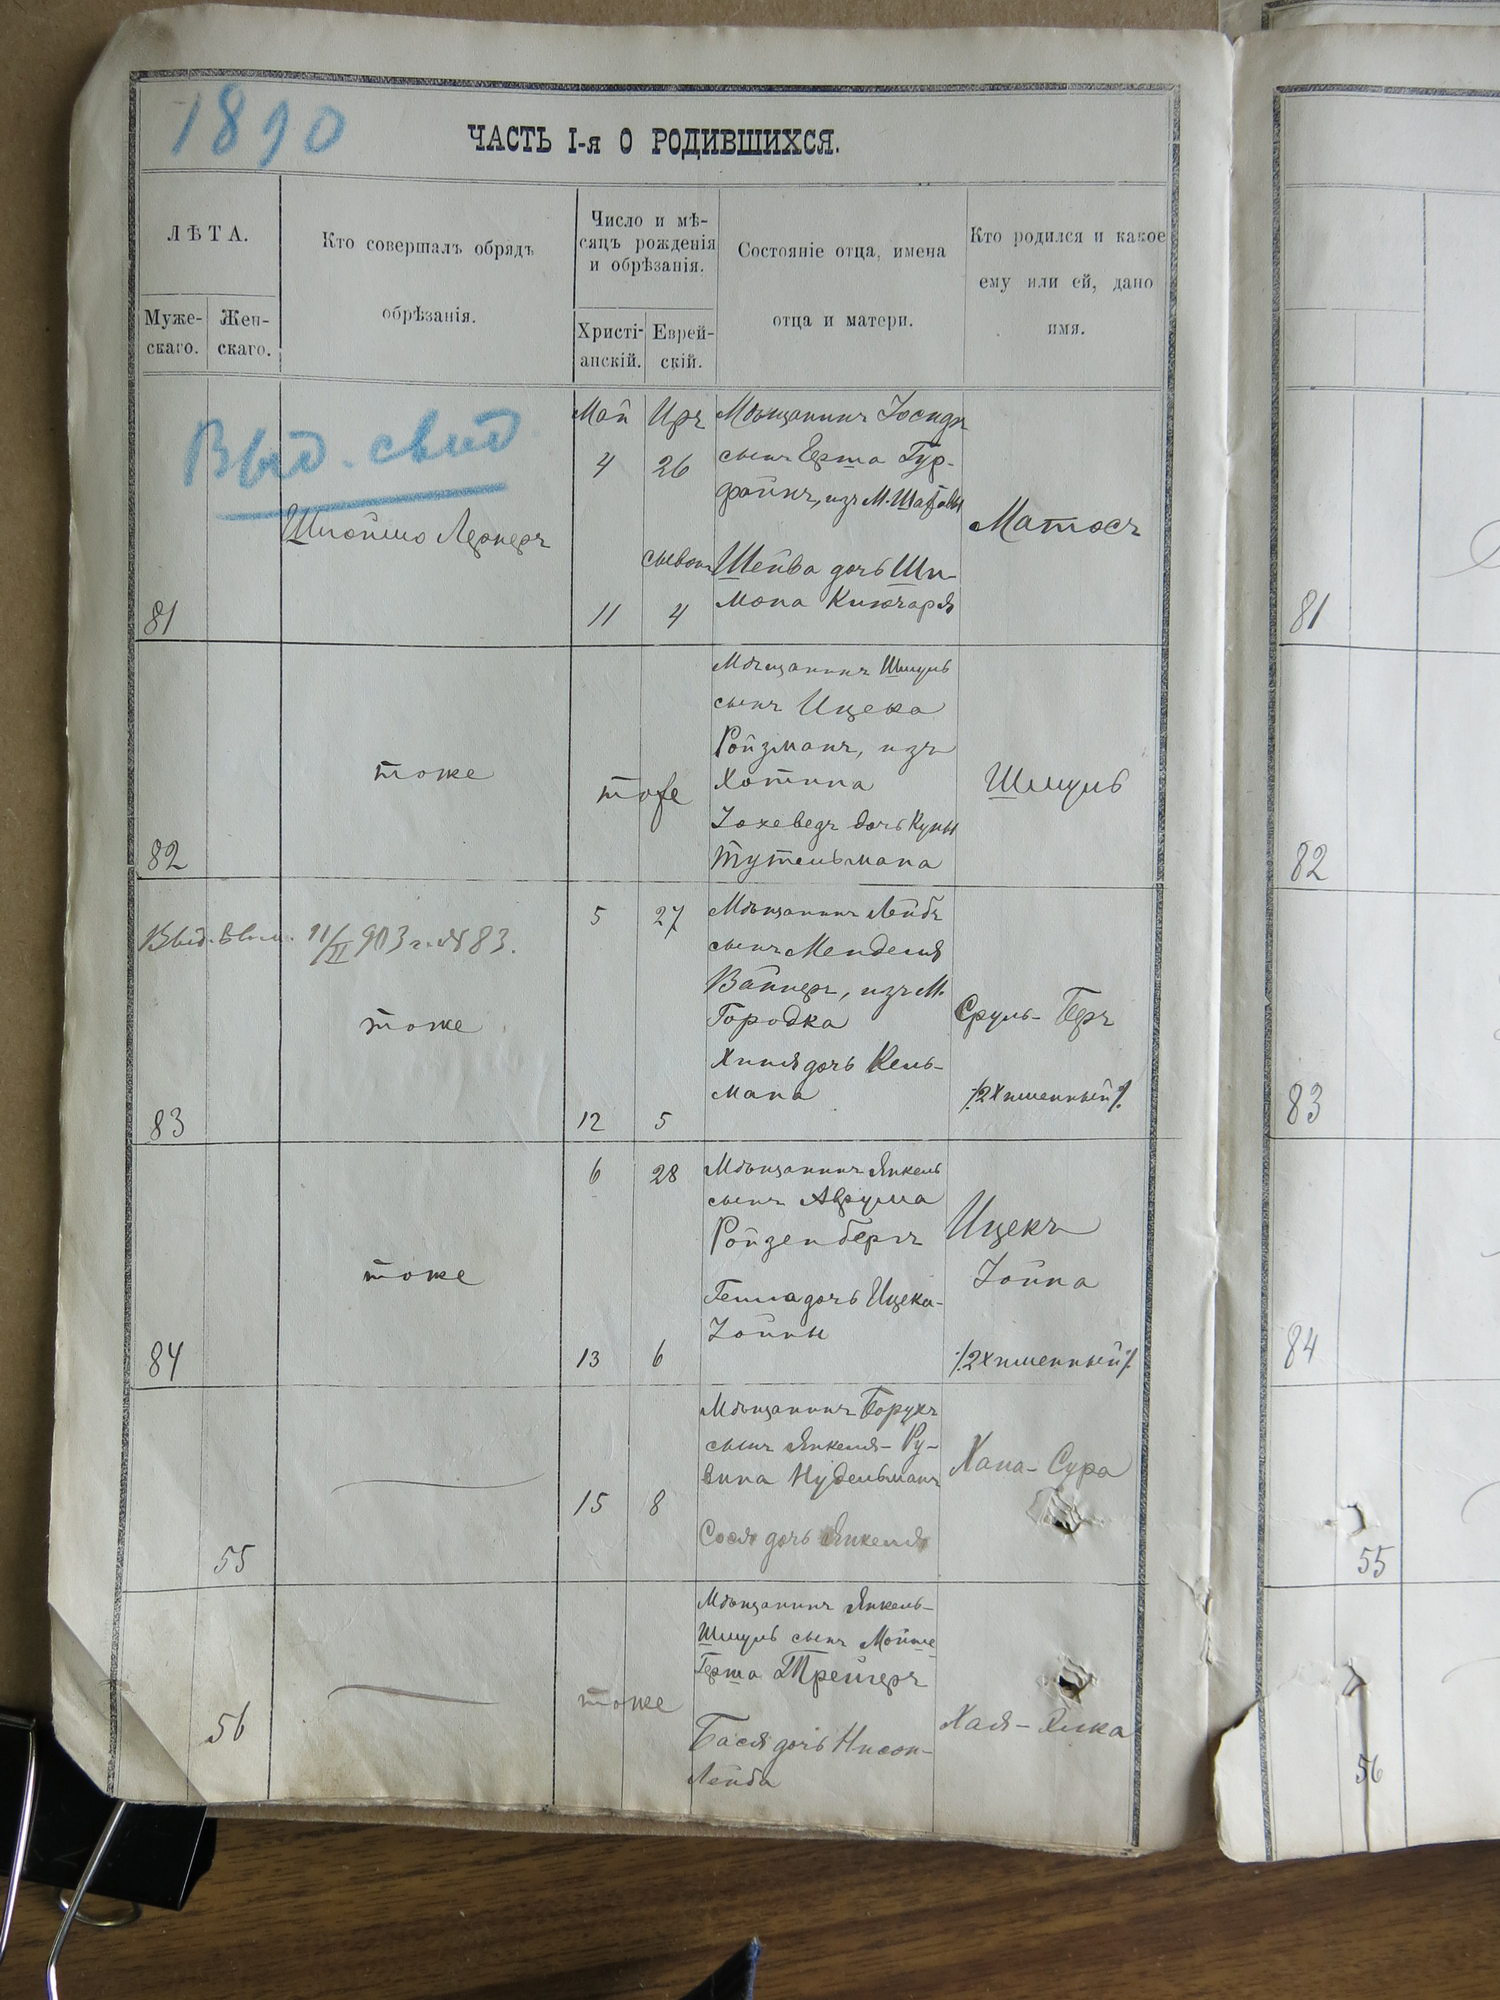 1890
ЧАСТЬ I-я О РОДИВШИХСЯ.
ЛѢТА.
Муже-
скаго.
Жен-
скаго.
Кто совершалъ обрядъ
обрѣзанія.
Число и мѣ-
сяцъ рожденія
и обрѣзанія.
Христі-
анскій.
Еврей-
скій.
Состояніе отца, имена
отца и матери.
Кто родился и какое
ему или ей, дано
имя.
Выд. свид.
81
Шлоймо Лернеръ
Май
4
11
Иръ
26
сывонъ
4
Мѣщанинъ Іосифъ
сынъ Герша Гур-
файнъ, изъ М.
Шейва дочь Ши-
мона Ключаря
Матосъ
81
82
тоже
тоже
Мѣщанинъ Шмуль
сынъ Ицека
Ройзманъ, изъ
Хотина
Іохеведъ дочь Куны
Тутельмана
Шмуль
82
11/II 903 г. № 83.
83
тоже
5
12
27
5
Мѣщанинъ Лейбъ
сынъ Менделя
Вайнеръ, изъ М.
Городка
Хиля дочь Кель-
мана
Сруль-Беръ
83
84
тоже
6
13
28
6
Мѣщанинъ Янкель
сынъ Аврума
Ройзенбергъ
дочь Ицека-
Іойны
Ицекъ
Іойна
84
55
15
8
Мѣщанинъ Борухъ
сынъ Янкеля-Ру-
вина Нудельманъ
Сося дочь Янкеля
Хана-Сура
55
56
тоже
Мѣщанинъ Янкель-
Шмуль сынъ Мойше
Герша Трейгеръ
Бася дочь Нисон-
Лейба
Хая-
56